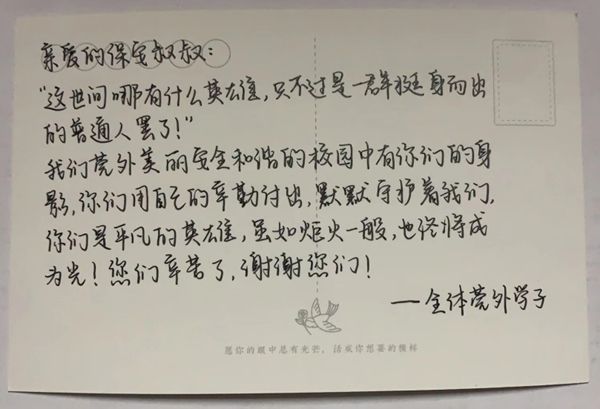 亲爱的保安叔叔：
“这世间哪有什么英雄，只不过是一群挺身而出
的普通人罢了！”
我们莞外美丽安全和谐的校园中有你们的身
影，你们用自己的辛勤付出，默默守护着我们，
你们是平凡的英雄，虽如炬火一般，也终将成
为光！您们辛苦了，谢谢您们！
——全体莞外学子
愿你的眼中总有光芒，活成你想要的模样